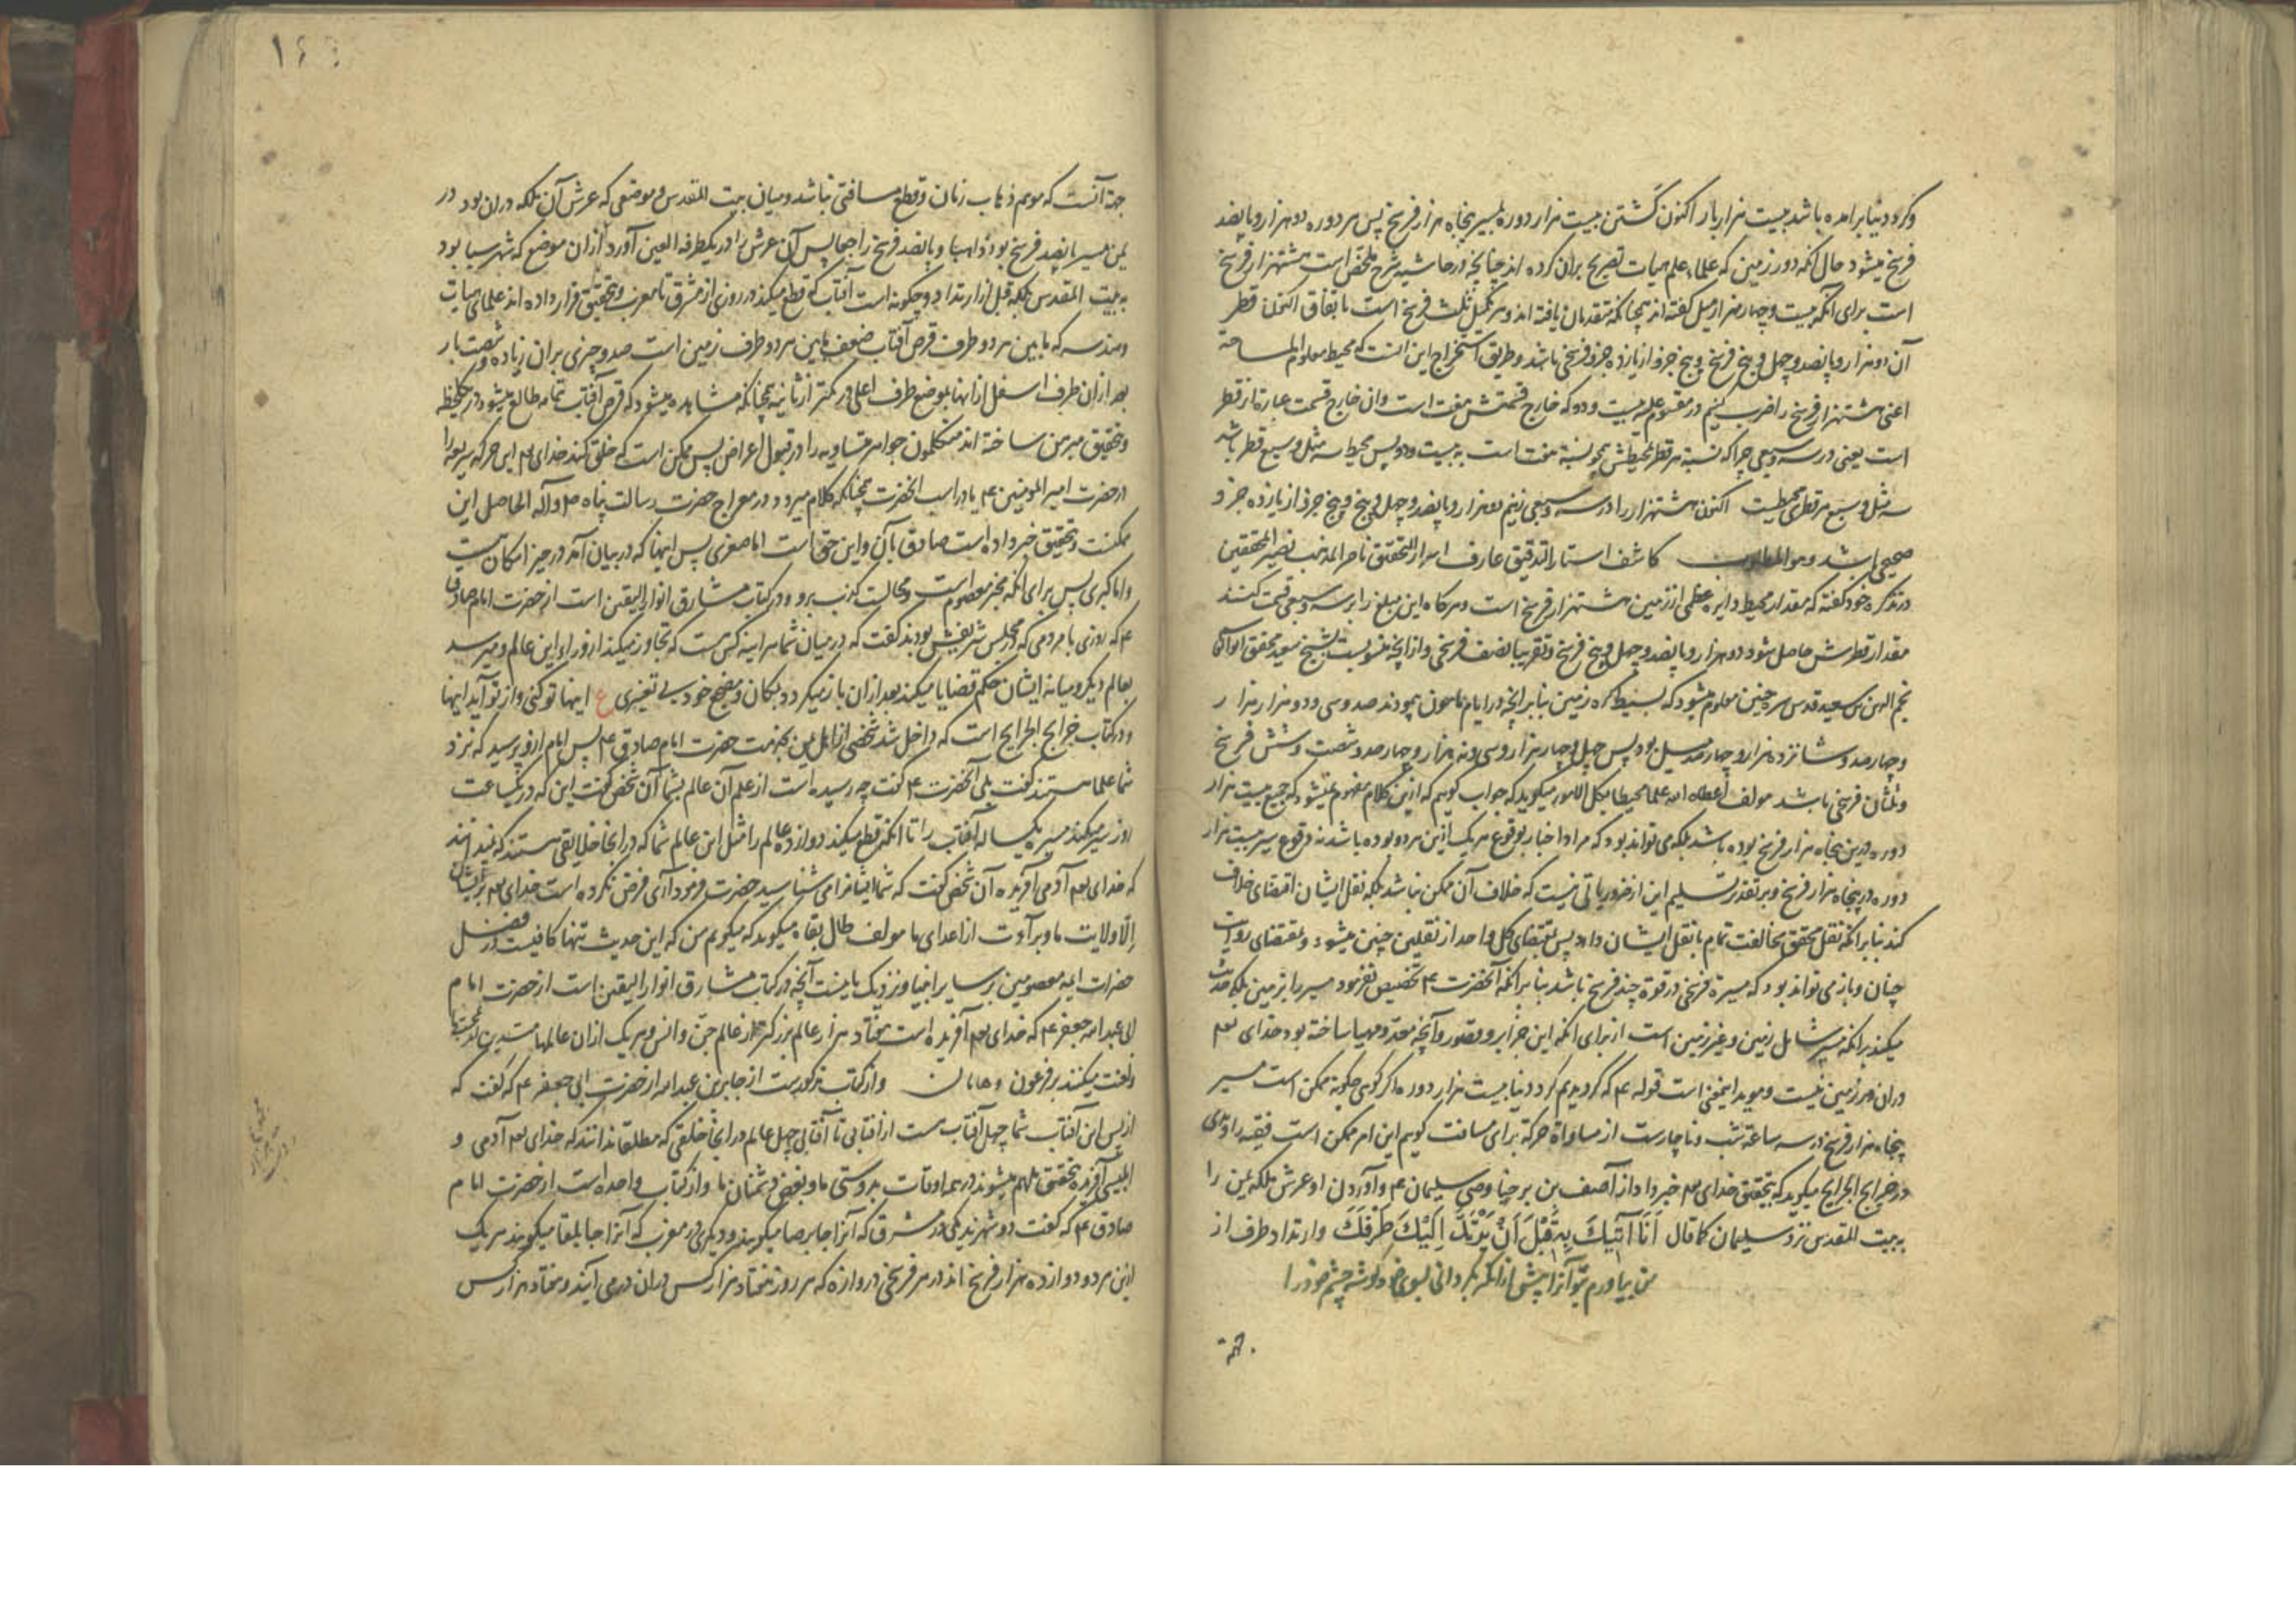 وکرد دنیا برامده باشد بیست هزار بار اکنون گشتن بیست هزار دوره بمسیر پنجاه هزار فرسخ پس هر دوره دو هزار و پانصد
فرسخ میشود حال آنکه دور زمین که علماء علم هیات تصریح بران کرده اند چنانچه در حاشیه شرح ملخص است هشتهزار فرسخ
است برای آنکه بیست و چهار هزار میل گفته اند همچنانکه متقدمان یافته اند و هر یکمیل ثلث فرسخ است باتفاق اکنون قطر
آن دو هزار و پانصد و چهل و پنج فرسخ و پنج جزو از یازده جزو فرسخی باشد و طریق استخراج این انست که محیط معلوم المساحة
اعنی هشتهزار فرسخ را ضرب کنیم در مقسوم علیه بیست و دو که خارج قسمتش هفت است وان خارج قسمت عبارة از قطر
است یعنی در سه و سبعی چرا که نسبة هر قطر بمحیطش همچو نسبة هفت است به بیست و دو پس محیط سه مثل و سبع قطر باشد
سه مثل و سبع هر قطری محیطیست اکنون هشتهزار را در سه و سبعی زنیم دو هزار و پانصد و چهل و پنج و پنج جزو از یازده جزو
صحیح باشد و هو المطلوب کاشف استار التدقیق عارف اسرار التحقیق ناصر المذهب نصیر المحققین
در تذکره خود گفته که مقدار محیط دایره عظمی از زمین هشتهزار فرسخ است و هرکاه این مبلغ را بر سه و سبعی قسمت کنند
مقدار قطرش حاصل شود دو هزار و پانصد و چهل و پنج فرسخ و تقریبا نصف فرسخی و از آنچه منسوبست بشیخ سعید محقق
نجم الدین بن سعید قدس سره چنین معلوم میشود که بسیط کره زمین بنا بر آنچه در ایام مامون پیمودند صد و سی و دو هزار هزار
و چهار صد و شانزده هزار و چهار صد میل بود پس چهل و چهار هزار و سی و نه هزار و چهار صد و شصت و شش فرسخ
و ثلثان فرسخی باشد مولف اعطاه الله علما محیطا بکل الامور میکوید که جواب کویم که ازین کلام مفهوم نمیشود که جمیع بیست هزار
دوره درین پنجاه هزار فرسخ بوده باشد بلکه می تواند بود که مراد اخبار بوقوع هر یک ازین هر دو بوده باشد نه وقوع سیر بیست هزار
دوره در پنجاه هزار فرسخ و بر تقدیر تسلیم این از ضروریاتی نیست که خلاف آن ممکن نباشد بلکه نقل ایشان اقتضای خلاف
کند بنا بر آنکه نقل محقق مخالفت تمام با نقل ایشان دارد پس بمقتضای کل واحد از نقلین چنین میشود و بمقتضای روایت
چنان و باز می تواند بود که مسیرة فرسخی در قوة چند فرسخ باشد بنا بر آنکه آنحضرت ع تخصیص نفرمود مسیر را بزمین بلکه
میکند بر آنکه مسیر شامل زمین و غیر زمین است از برای آنکه این جزایر و قصور و آنچه معد و مهیا ساخته بود خدای تعالی
دران در زمین نیست و موید اینمعنی است قوله ع که کردیدیم کرد دنیا بیست هزار دوره اگر گوئی چکونه ممکن است مسیر
پنجاه هزار فرسخ در سه ساعة شب و ناچارست از مساواة حرکة برای مسافت کویم این امر ممکن است فقیه راوندی
در خرایج الجرایح میکوید که بتحقیق خدای تعالی خبر داد از آصف بن برخیا وصی سلیمان ع و آوردن او عرش ملکه یمن را
به بیت المقدس نزد سلیمان کما قال أَنَا آتِيكَ بِهِ قَبْلَ أَنْ يَرْتَدَّ إِلَيْكَ طَرْفُكَ وارتداد طرف از
من بیاورم بتو آنرا پیش از آنکه بگردانی بسوی خود گوشه چشم خود را
جهة
جهة آنست که موهم ذهاب زمان و قطع مسافتی نباشد و میان بیت المقدس و موضعی که عرش آن ملکه دران بود در
یمن مسیر پانصد فرسخ بود ذاهبا و پانصد فرسخ راجعا پس آن عرش را در یکطرفة العین آورد ازان موضع که شهر سبا بود
به بیت المقدس بلکه قبل از ارتداد و چکونه است آفتاب که قطع میکند در روزی از مشرق تا مغرب و بتحقیق قرار داده اند علمای هیات
و هندسه که مابین هر دو طرف قرص آفتاب ضعف مابین هر دو طرف زمین است صد و چیزی بران زیاده و شصت بار
بعد ازان طرف اسفل از انها بموضع طرف اعلی در کمتر از ثانیه همچنانکه مشاهده میشود که قرص آفتاب تمام طالع میشود در یکلحظه
و بتحقیق مبرهن ساخته اند متکلمون جواهر متساویه را در قبول اعراض پس ممکن است که خلق کند خدای تعالی این حرکه سریعه را
در حضرت امیر المومنین ع یا در اسب آنحضرت همچنانکه کلام میرود در معراج حضرت رسالت پناه ص و آله الحاصل این
ممکنست و بتحقیق خبر داده است صادق بآن و این حق است اما صغری پس اینها که در بیان آمد در حیز امکان است
و اما کبری پس برای آنکه مخبر معصوم است و محالست کذب برو و در کتاب مشارق انوار الیقین است از حضرت امام صادق
ع که روزی با مردمی که در مجلس شریفش بودند گفت که در میان شما هر آینه کسی هست که تجاوز میکند از ورای این عالم و میرسد
بعالم دیگر و میانه ایشان حکم قضایا میکند بعد ازان باز میکردد بمکان و مضجع خود بی تغییری ع اینها تو کنی و از تو آید اینها
و در کتاب خرایج الجرایح است که داخل شد شخصی از اهل یمن بخدمت حضرت امام صادق ع پس امام ازو پرسید که نزد
شما علما هستند گفت بلی آنحضرت ع گفت چه رسیده است از علم آن عالم بشما آن شخص گفت این که در یکساعت
از روز سیر میکند مسیر یکساله آفتاب را تا آنکه قطع میکند دوازده عالم را مثل این عالم شما که در انجا خلایقی هستند که نمیدانند
که خدای تعالی آدمی آفریده آن شخص گفت که شما ایشانرا می شناسید حضرت فرمود آری فرض نکرده است خدای تعالی بر ایشان
الّا ولایت ما و برآءت از اعدای ما مولف طال بقاه میکوید که میکویم من که این حدیث تنها کافیست در فضل
حضرات ایمه معصومین بر سایر انبیا و نزدیک باینست آنچه در کتاب مشارق انوار الیقین است از حضرت امام
ابی عبد الله جعفر ع که خدای تعالی آفریده است هفتاد هزار عالم بزرکتر از عالم جن و انس و هر یک ازان عالمها
و لعنت میکنند بر فرعون و هامان و از کتاب مذکورست از جابر بن عبد الله از حضرت ابی جعفر ع که گفت که
از پس این آفتاب شما چهل آفتاب هست از افتابی تا آفتابی چهل عالم در انجا خلقی که مطلقا ندانند که خدای تعالی آدمی و
ابلیسی آفریده بتحقیق ملهم میشوند در همه اوقات بدوستی ما و بغض دشمنان ما و از کتاب واحده است از حضرت امام
صادق ع که گفت دو شهرند یکی در مشرق که آنرا جابرصا میکویند و دیگری در مغرب که آنرا جابلقا میکویند هر یک
ازین هر دو دوازده هزار فرسخ اند در هر فرسخی دروازه که هر روز هفتاد هزار کس دران درمی آیند و هفتاد هزار کس